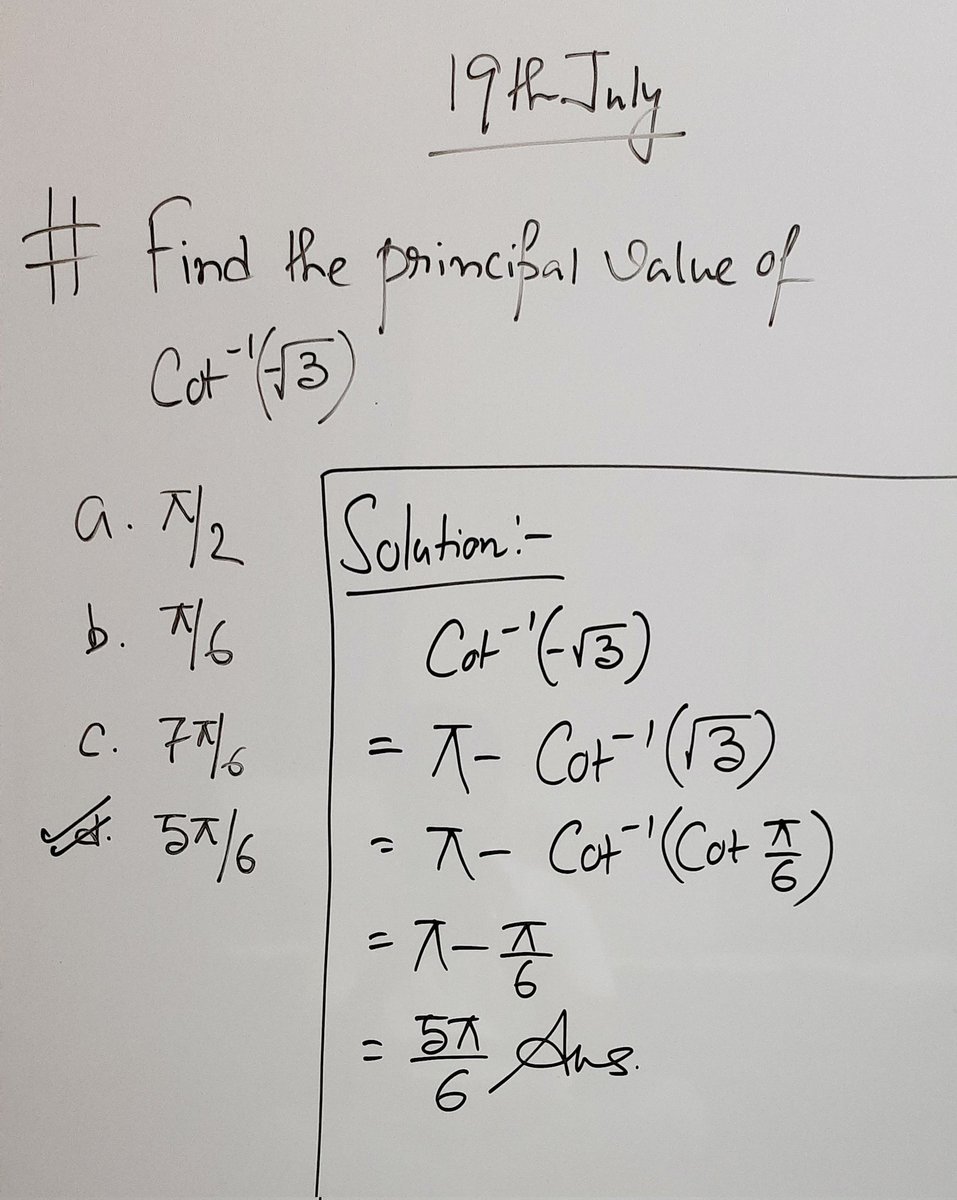 19th July
# Find the principal value of
Cot⁻¹(-√3)
a. π/2
b. π/6
c. 7π/6
✓d. 5π/6
Solution:-
Cot⁻¹(-√3)
= π - Cot⁻¹(√3)
= π - Cot⁻¹(Cot π/6)
= π - π/6
= 5π/6 Ans.